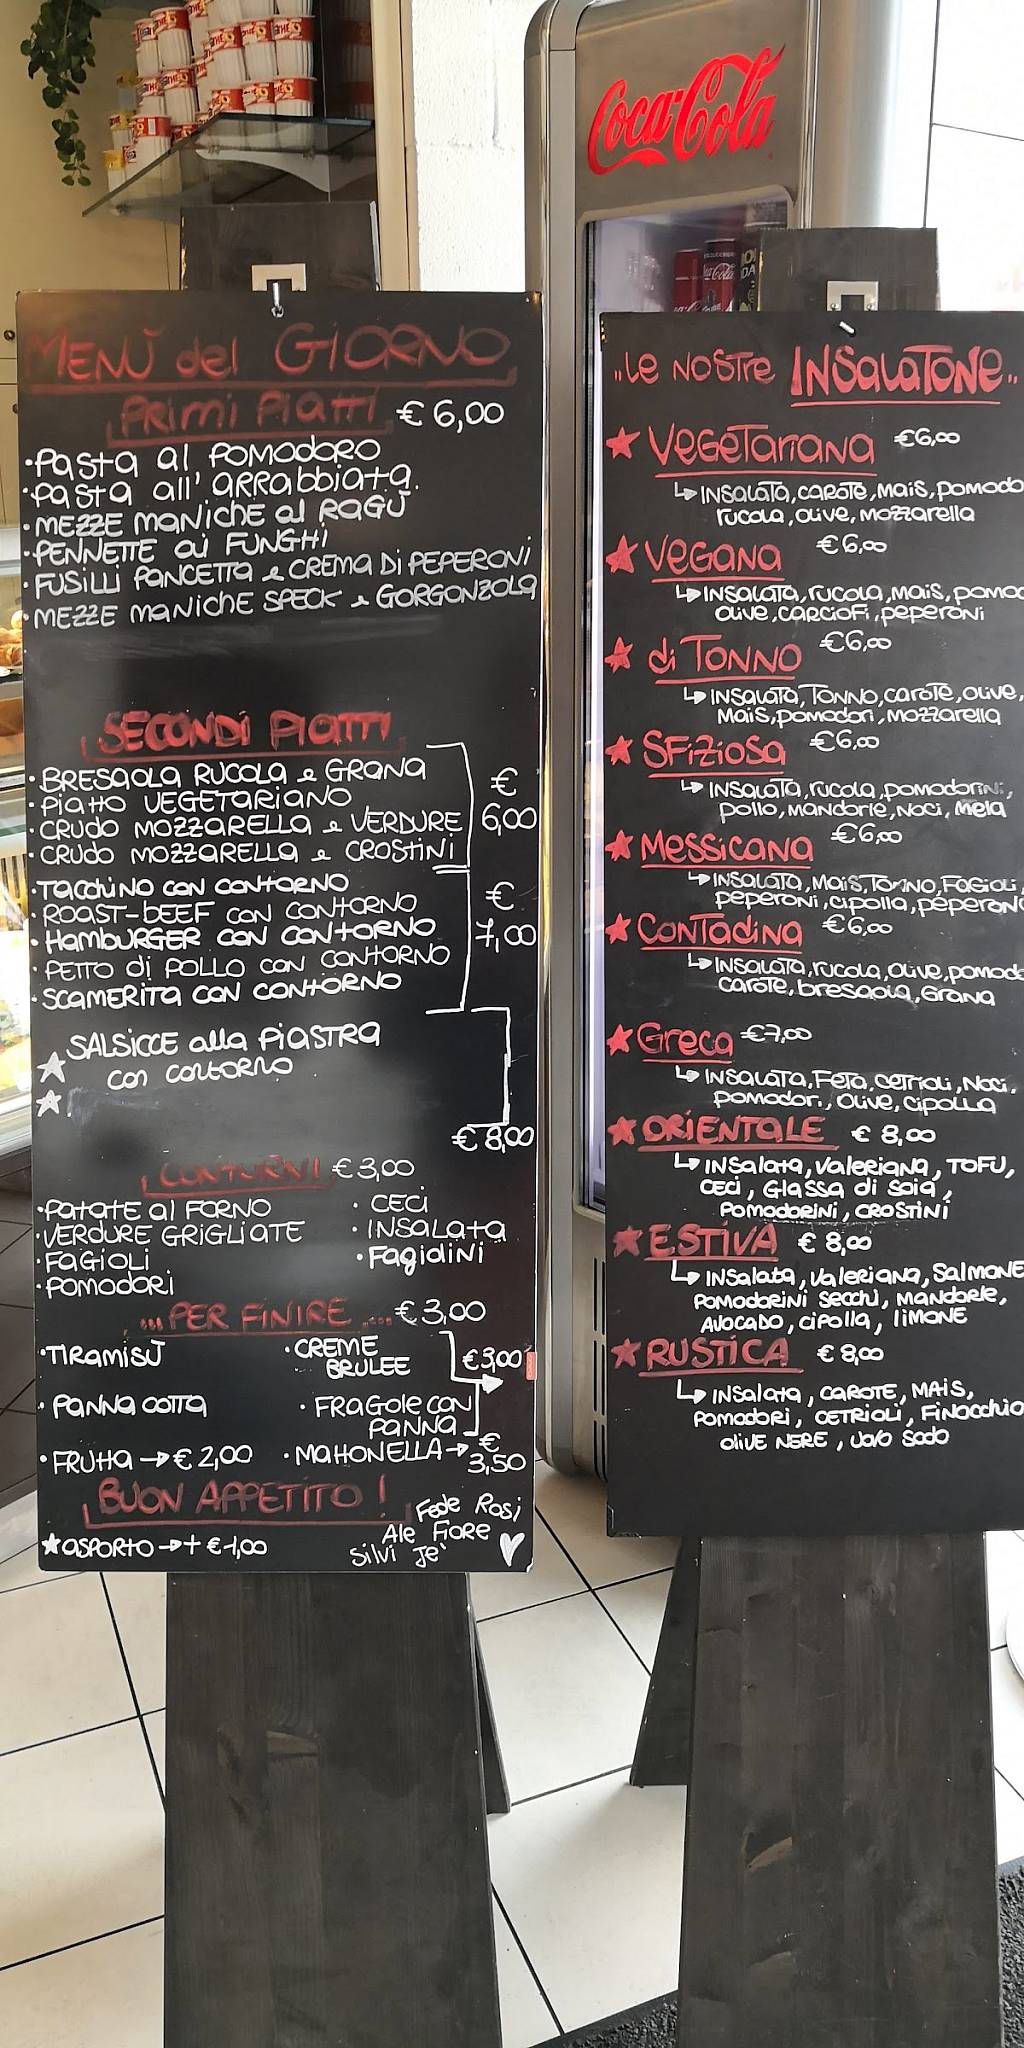 Coca-Cola
MENÙ del GIORNO
PRIMI PIATTI € 6,00
• PASTA al POMODORO
• PASTA all' ARRABBIATA.
• MEZZE MANICHE al RAGÙ
• PENNETTE ai FUNGHI
• FUSILLI PANCETTA e CREMA DI PEPERONI
• MEZZE MANICHE SPECK e GORGONZOLA
SECONDI PIATTI
• BRESAOLA RUCOLA e GRANA
• PIATTO VEGETARIANO
• CRUDO MOZZARELLA e VERDURE
• CRUDO MOZZARELLA e CROSTINI
€ 6,00
• TACCHINO CON CONTORNO
• ROAST-BEEF CON CONTORNO
• HAMBURGER CON CONTORNO
• PETTO di POLLO CON CONTORNO
• SCAMERITA CON CONTORNO
€ 7,00
SALSICCE alla PIASTRA
con contorno
€ 8,00
CONTORNI € 3,00
• PATATE al FORNO
• VERDURE GRIGLIATE
• FAGIOLI
• POMODORI
• CECI
• INSALATA
• Fagiolini
... PER FINIRE ... € 3,00
• TIRAMISÙ
• CREME
BRULEE
€ 3,00
• PANNA COTTA
• FRAGOLE CON
PANNA
• FRUTTA → € 2,00
• MATTONELLA → € 3,50
BUON APPETITO !
★ ASPORTO → + € 1,00
Fede Rosi
Ale Fiore
Silvi Je'
"Le NOSTRE INSALATONE"
★ VEGETARIANA € 6,00
↳ INSALATA, CAROTE, MAIS, POMODO
RUCOLA, OLIVE, MOZZARELLA
★ VEGANA € 6,00
↳ INSALATA, RUCOLA, MAIS, POMO
OLIVE, CARCIOFI, PEPERONI
★ di TONNO € 6,00
↳ INSALATA, TONNO, CAROTE, OLIVE,
MAIS, POMODORI, MOZZARELLA
★ SFIZIOSA € 6,00
↳ INSALATA, RUCOLA, POMODORINI,
POLLO, MANDORLE, NOCI, MELA
★ MESSICANA € 6,00
↳ INSALATA, MAIS, TONNO, FAGIOLI,
PEPERONI, CIPOLLA, PEPERON
★ CONTADINA € 6,00
↳ INSALATA, RUCOLA, OLIVE, POMODO
CAROTE, BRESAOLA, GRANA
★ GRECA € 7,00
↳ INSALATA, FETA, CETRIOLI, NOCI,
POMODORI, OLIVE, CIPOLLA
★ ORIENTALE € 8,00
↳ INSALATA, VALERIANA, TOFU,
CECI, GLASSA di SOIA,
POMODORINI, CROSTINI
★ ESTIVA € 8,00
↳ INSALATA, VALERIANA, SALMONE
POMODORINI SECCHI, MANDORLE,
AVOCADO, CIPOLLA, LIMONE
★ RUSTICA € 8,00
↳ INSALATA, CAROTE, MAIS,
POMODORI, CETRIOLI, FINOCCHIO
OLIVE NERE, UOVO SODO